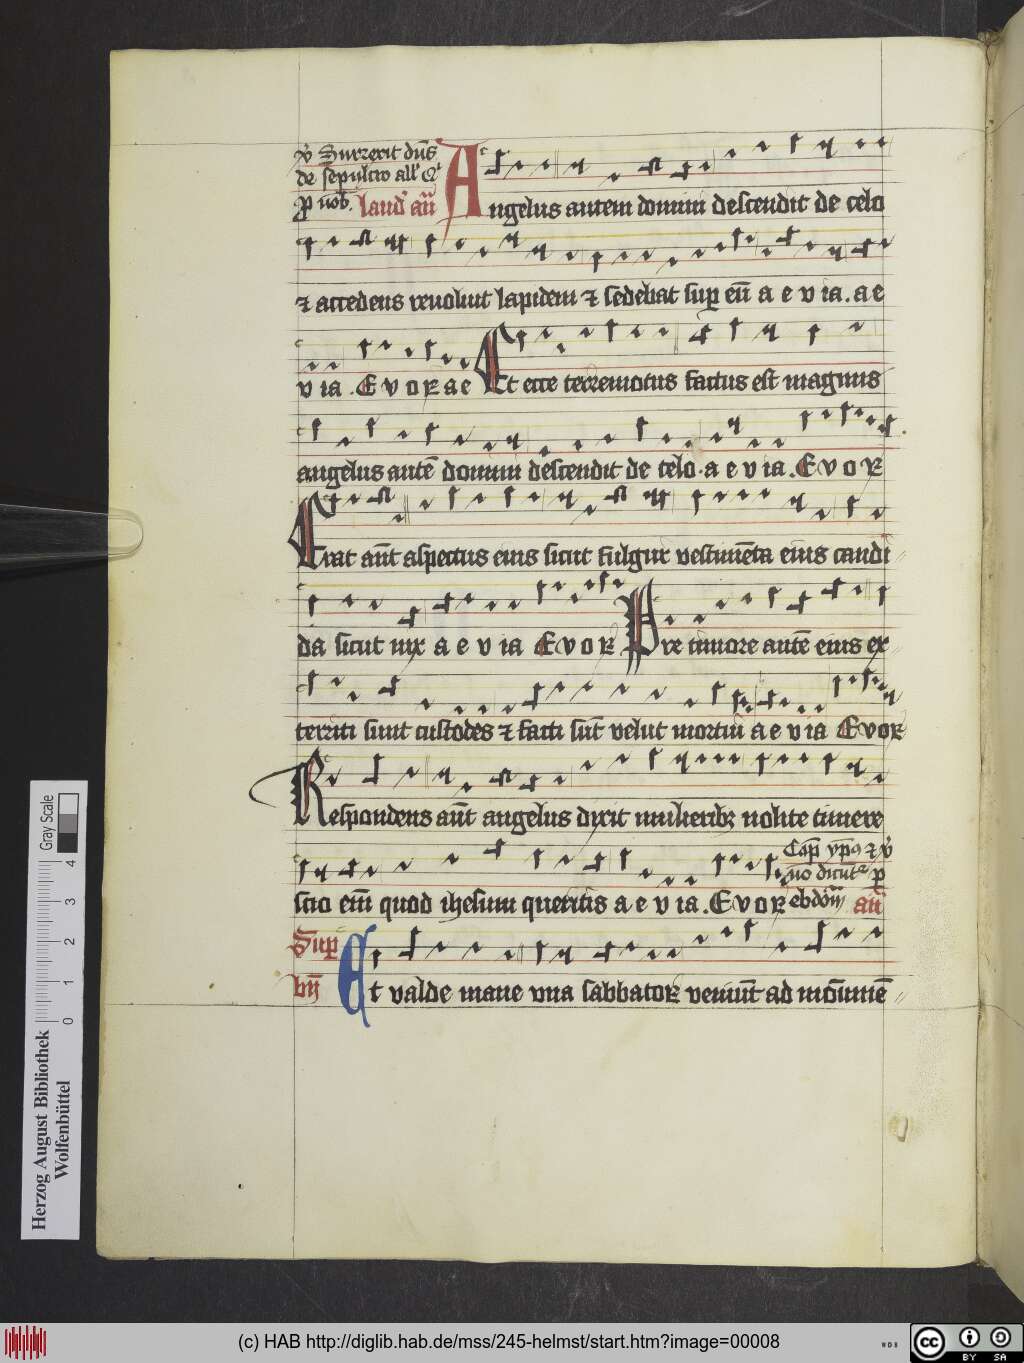 v̉ Surrexit dn̄s
de sepulcro all' Q'
ꝓ nob̄. laud' an̄
Angelus autem domini descendit de celo
⁊ accedens revolvit lapidem ⁊ sedebat sup eū a e v ia. a e
v ia. E v o R a e Et ecce terremotus factus est magnus
angelus autē domini descendit de celo. a e v ia. E v o R
Erat aūt aspectus eius sicut fulgur vestimēta eius candi
da sicut nix a e v ia E v o R Pre timore autē eius ex
territi sunt custodes ⁊ facti sūt velut mortui a e v ia E v o R
Respondens aūt angelus dixit mulieribꝫ nolite timere
Cap̄ yp̄ꝰ ⁊ v̉
nō dicūt' ꝑ
scio eīm quod ihesum queritis a e v ia. E v o R ebdom̄ an̄
Sup
bn̄
Et valde mane una sabbatoR veniūt ad monumē
Herzog August Bibliothek
Wolfenbüttel
Gray Scale
0 1 2 3 4
(c) HAB http://diglib.hab.de/mss/245-helmst/start.htm?image=00008
WDB
cc
BY SA